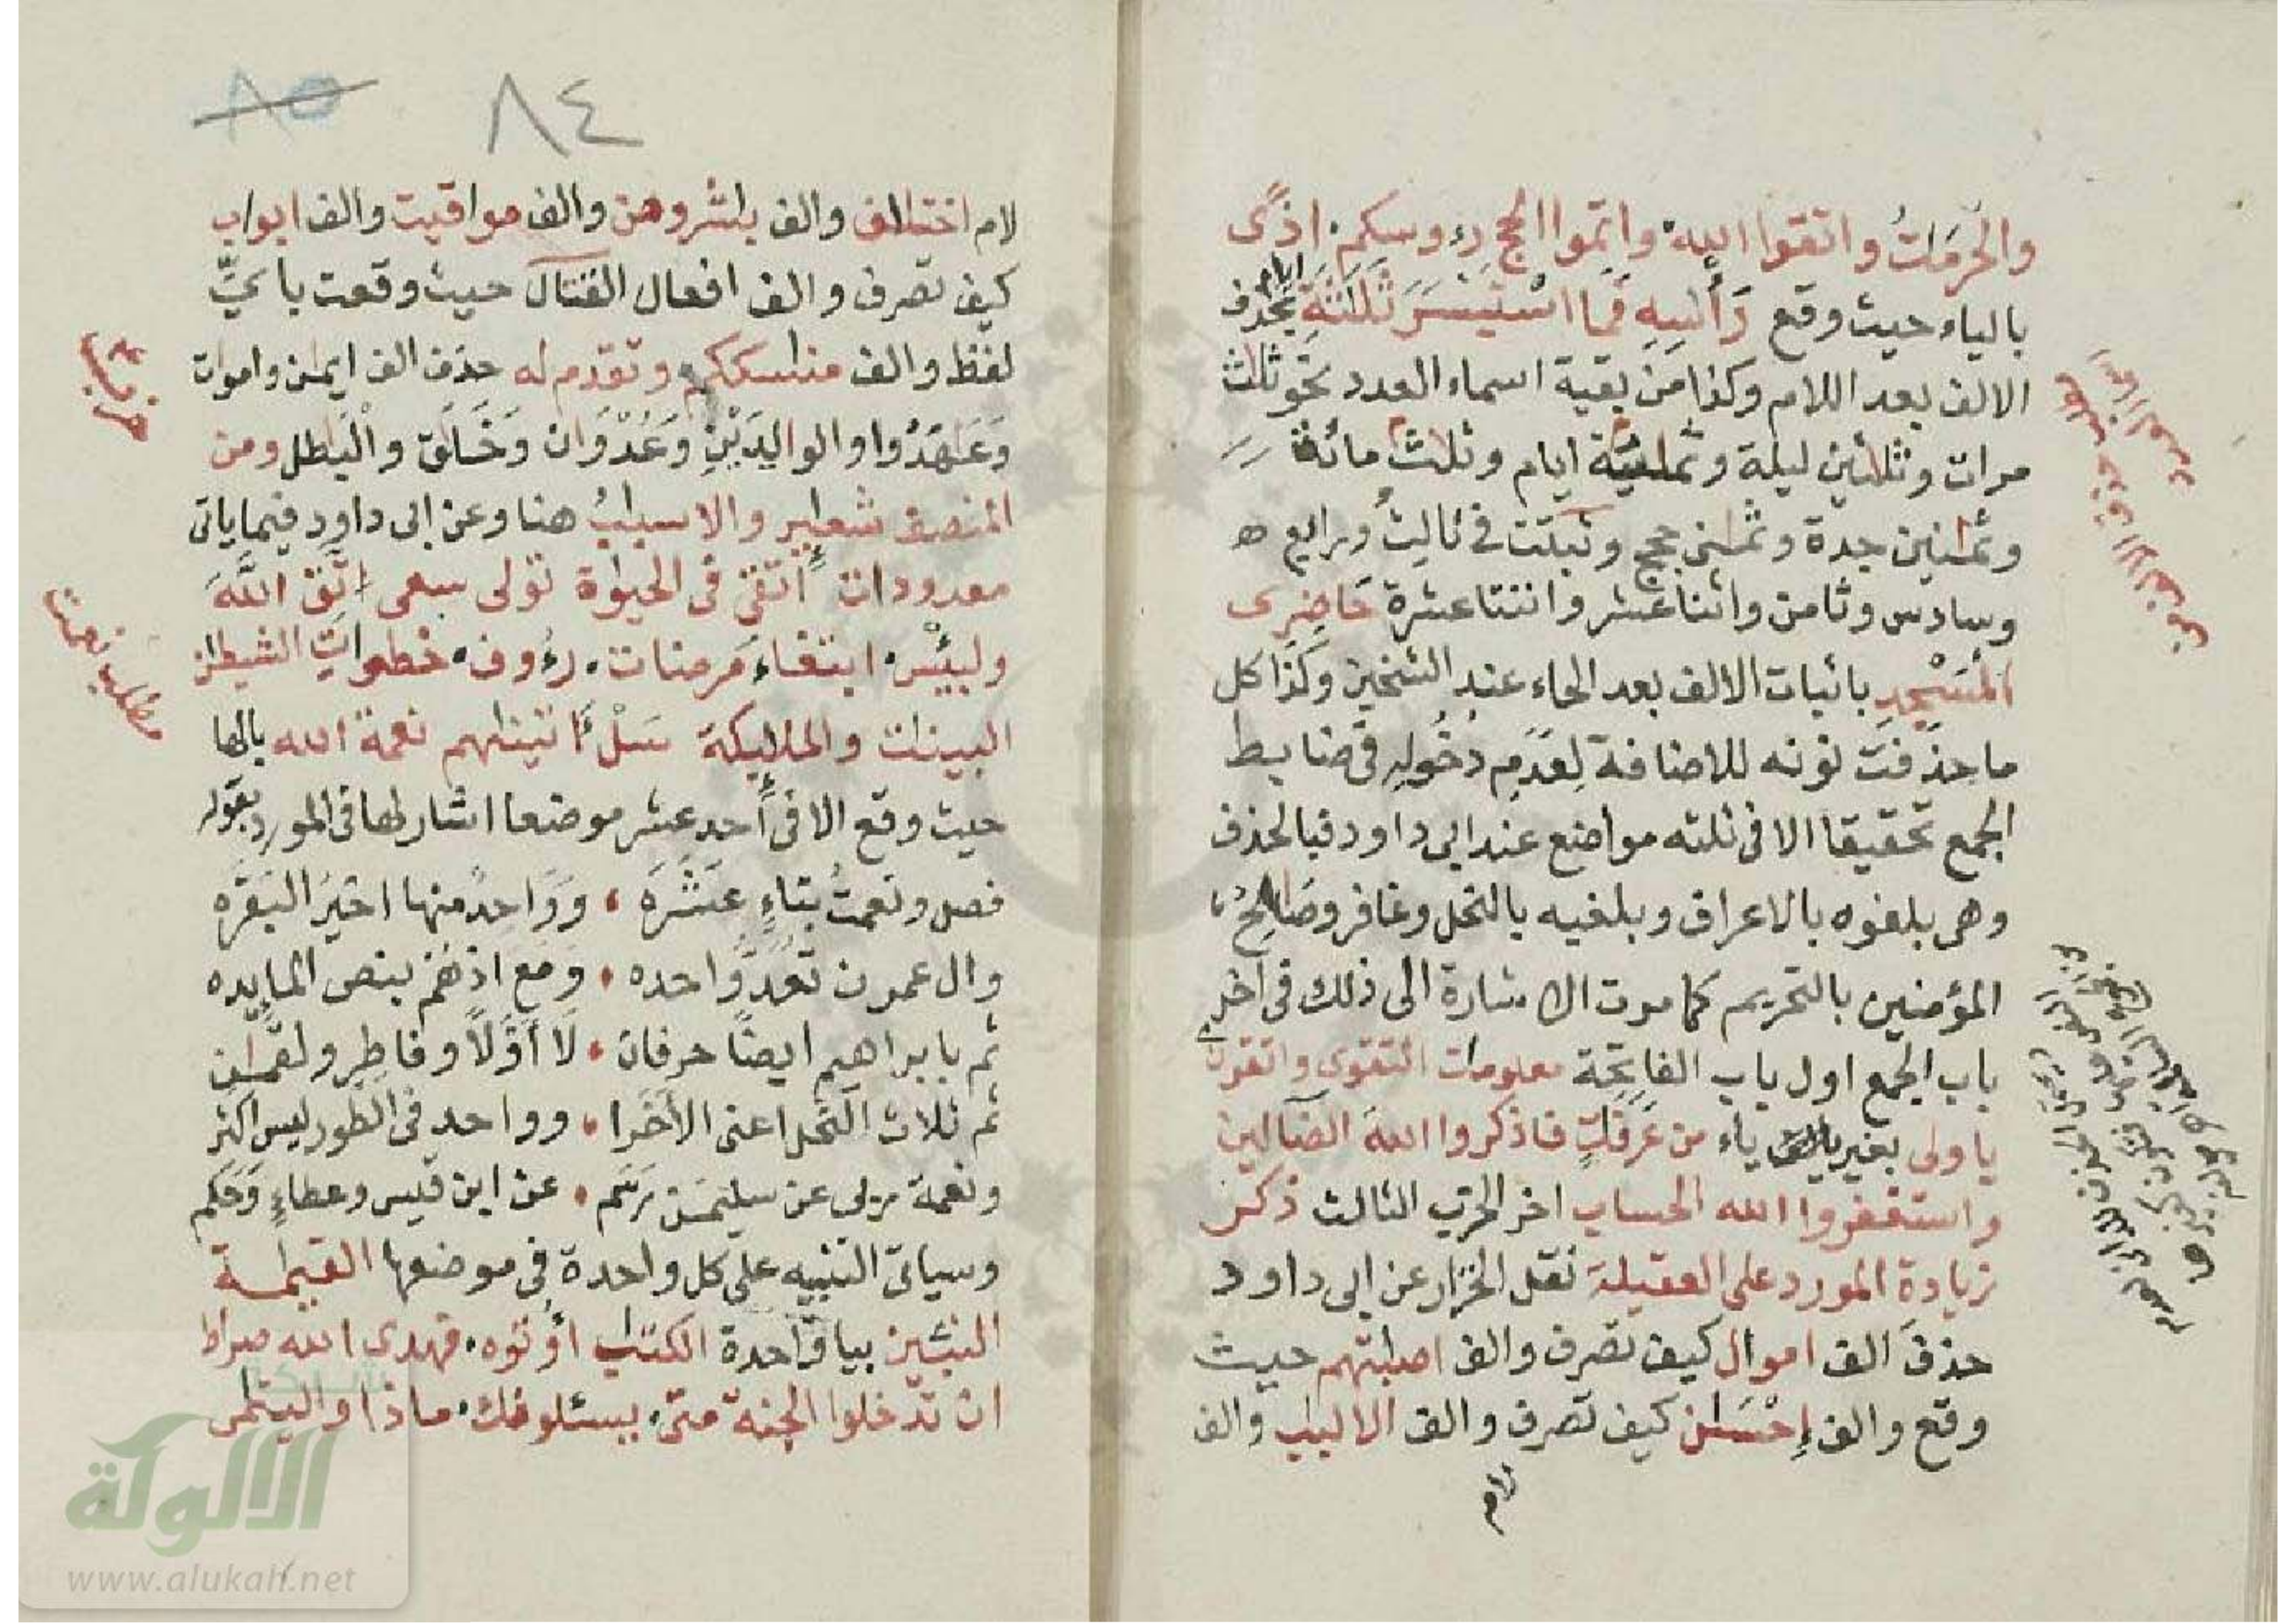 والحرمات واتقوا الله واتموا الحج رءوسكم اذى
بالياء حيث وقع رأسه فما استيسر ثلثة ايام بحذف
الالف بعد اللام وكذا من بقية اسماء العدد نحو ثلث
مرات وثلثين ليلة وثمنية ايام وثلث مائة
وثمنين جدة وثمنى حجج وثبتت في ثالث ورابع
وسادس وثامن واثنا عشر واثنتا عشرة حاضرى
المسجد باثبات الالف بعد الحاء عند الشيخين وكذا كل
ما حذفت نونه للاضافة لعدم دخوله في ضابط
الجمع تحقيقا الا في ثلثه مواضع عند ابي داود فبالحذف
وهي بلغوه بالاعراف وبلغيه بالنحل وغافر وصالح
المؤمنين بالتحريم كما مرت الاشارة الى ذلك في اخر
باب الجمع اول باب الفاتحة معلومات التقوى واتقون
ياولى بغير ياء من عرفات فاذكروا الله الضالين
واستغفروا الله الحساب اخر الحزب الثالث ذكر
زيادة المورد على العقيلة نقل الخراز عن ابي داود
حذف الف اموال كيف تصرف والف اصبتهم حيث
وقع والف احسان كيف تصرف والف الالبب والف
لام
٨٥ ٨٤
لام اختلاف والف بشروهن والف مواقيت والف ابواب
كيف تصرف والف افعال القتال حيث وقعت باي
لفظ والف مناسككم وتقدم له حذف الف ايمان واموات
وعهدوا والوالدين وعدوان وخلق والبطل ومن
المنصف شعاير والاسباب هنا وعن ابي داود فيما ياتي
معدودات اتقى في الحيوة تولى سعى اتق الله
ولبئس ابتغاء مرضات رءوف خطوات الشيطان
البينات والملايكة سل اتيناهم نعمة الله بالها
حيث وقع الا في احد عشر موضعا اشار لها في المورد بقوله
فصل ونعمت بتاء عشره وواحد منها اخير البقره
وال عمرن تعد واحده ومع اذ هم بنص المايده
ثم بابراهيم ايضا حرفان لا اولا وفاطر ولقمن
ثم ثلاث النحل اعنى الاخرا وواحد في الطور ليس اكثر
ونعمة ربى عن سليمن رسم عن ابن قيس وعطاء وحكم
وسياتي التنبيه على كل واحدة في موضعها القيمة
النبيين بيا واحدة الكتب اوتوه فهدى الله صراط
ان تدخلوا الجنة متى يسئلونك ماذا واليتمى
مطلب نعمت
الألوكة
www.alukah.net